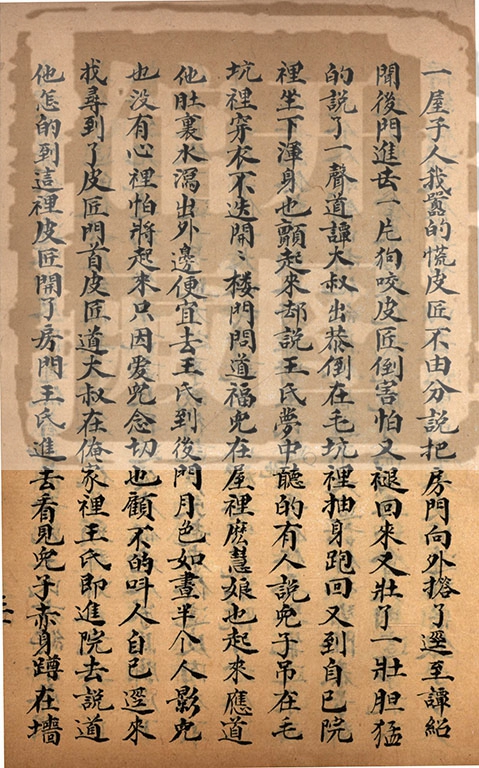 一屋子人我嚣的慌皮匠不由分說把房門向外搭了遝至譚紹
聞後門進去一片狗咬皮匠倒害怕又褪回來又壯了一壯胆猛
的說了一聲道譚大叔出恭倒在毛坑裡抽身跑回又到自己院
裡坐下渾身也顫起來却說王氏夢中聽的有人說兒子吊在毛
坑裡穿衣不迭開〻楼門問道福兒在屋裡麽慧娘也起來應道
他肚裏水瀉出外邊便宜去王氏到後門月色如晝半个人影兒
也没有心裡怕將起來只因爱兒念切也顧不的呌人自己遝來
找尋到了皮匠門首皮匠道大叔在俺家裡王氏即進院去說道
他怎的到這裡皮匠開了房門王氏進去看見兒子赤身蹲在墻